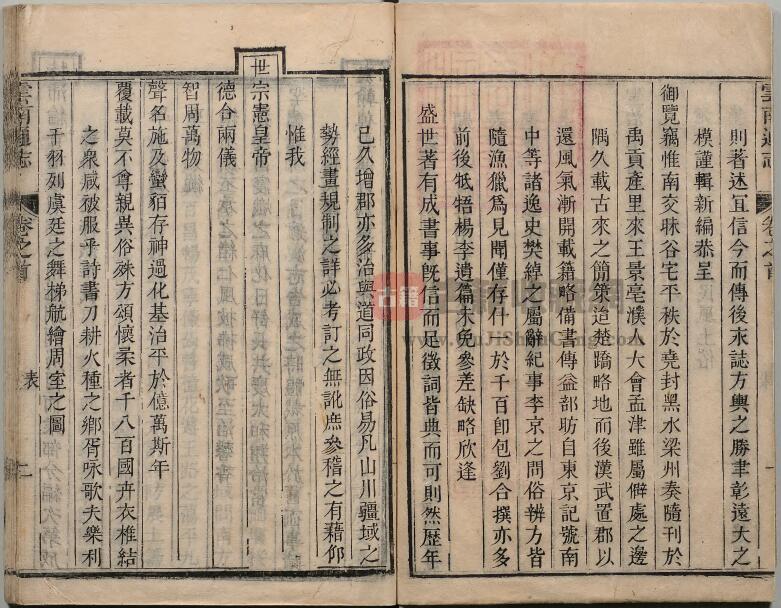 則著述宜信今而傳後求誌方輿之勝聿彰遠大之
模謹輯新編恭呈
御覽竊惟南交昧谷宅平秩於堯封黑水梁州奏隨刊於
禹貢產里來王景亳濮人大會孟津雖屬僻處之邊
隅久載古來之簡策迨楚蹻略地而後漢武置郡以
還風氣漸開載籍略備書傳益部昉自東京記號南
中等諸逸史樊綽之屬辭紀事李京之問俗辨方皆
隨漁獵爲見聞僅存什一於千百卽包劉合撰亦多
前後牴牾楊李遺篇未免參差缺略欣逢
盛世著有成書事旣信而足徵詞皆典而可則然歷年
已久增郡亦多治與道同政因俗易凡山川疆域之
勢經畫規制之詳必考訂之無訛庶參稽之有藉仰
惟我
世宗憲皇帝
德合兩儀
智周萬物
聲名施及蠻貊存神過化基治平於億萬斯年
覆載莫不尊親異俗殊方頌懷柔者千八百國卉衣椎結
之衆咸被服乎詩書刀耕火種之鄉胥咏歌夫樂利
干羽列虞廷之舞梯航繪周室之圖
雲南通志
卷之首
表
二
雲南通志
卷之首
古籍
www.GuJiShuCang.com